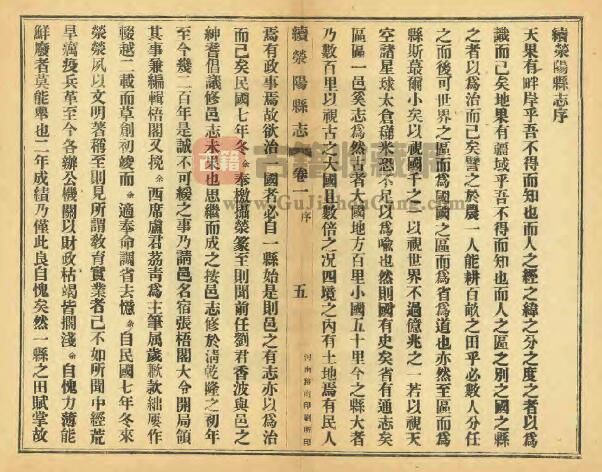 續滎陽縣志序
天果有畔岸乎吾不得而知也而人之經之緯之分之度之者以爲
識而已矣地果有疆域乎吾不得而知也而人之區之別之國之縣
之者以爲治而已矣譬之於農一人能耕百畝之田乎必數人分任
之而後可世界之區而爲國國之區而爲省爲道也亦然至區而爲
縣斯蕞爾小矣以視國千之二以視世界不過億兆之一若以視天
空諸星球太倉稊米恐不足以爲喻也然則國有史矣省有通志矣
區區一邑奚志爲然古者大國地方百里小國五十里今之縣大者
乃數百里以視古之大國且數倍之況四境之內有土地焉有民人
續滎陽縣志 卷一 序 五 河南商務印刷所印
焉有政事焉故欲治一國者必自一縣始是則邑之有志亦以爲治
而已矣民國七年冬余奉檄攝滎篆至則聞前任劉君香波與邑之
紳耆倡議修邑志未果也思繼而成之按邑志修於清乾隆之初年
至今幾二百年是誠不可緩之事乃請邑名宿張梧閣大令開局領
其事兼編輯梧閣又挽余西席盧君荔青爲主筆屬歲歉款絀屢作
輟越二載而草創初竣而余適奉命調省去憶余自民國七年冬來
滎滎夙以文明著稱至則見所謂教育實業者已不如所聞中經荒
旱癘疫兵革至今各辦公機關以財政枯竭皆擱淺余自愧力薄能
鮮廢者莫能舉也二年成績乃僅此良自愧矣然一縣之田賦掌故
古籍收藏网
www.GuJiShouCang.Com